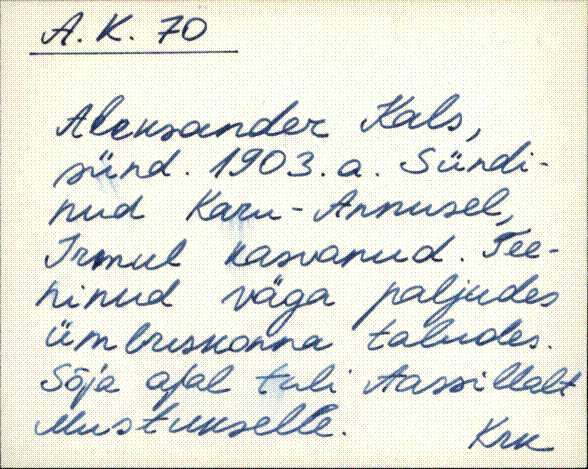 A. K. 70
Aleksander Kals,
sünd. 1903. a. Sündi-
nud Karu-Annusel,
Irmul kasvanud. Tee-
ninud väga paljudes
ümbruskonna taludes.
Sõja ajal tuli Aassillalt
Mustukselle.
Krk